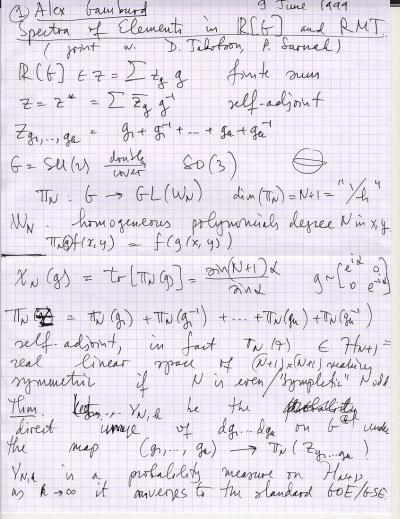 ① Alex Gamburd 9 June 1999
Spectra of Elements in R[G] and RMT
(joint w. D. Jakobson, P. Sarnak)
R[G] ∈ z = Σ z_g g finite sum
z = z* = Σ z̄_g g⁻¹ self-adjoint
Z_{g₁,...,g_k} = g₁ + g₁⁻¹ + ... + g_k + g_k⁻¹
G = SU(2) double cover SO(3)
π_N : G → GL(W_N) dim(π_N) = N+1 = "1/h"
W_N - homogeneous polynomials degree N in x, y
π_N(g) f(x,y) = f(g(x,y))
χ_N(g) = tr[π_N(g)] = sin(N+1)α / sin α g ~ [e^{iα} 0 0 e^{-iα}]
π_N = π_N(g₁) + π_N(g₁⁻¹) + ... + π_N(g_k) + π_N(g_k⁻¹)
self-adjoint, in fact π_N(z) ∈ H_{N+1} =
real linear space of (N+1)×(N+1) matrices
symmetric if N is even / "symplectic" N odd
Thm. ν_{N,k} be the
direct image of dg₁...dg_k on G^k under
the map (g₁,..., g_k) → π_N(Z_{g₁...g_k})
ν_{N,k} is a probability measure on H_{N+1}
as k → ∞ it converges to the standard GOE/GSE